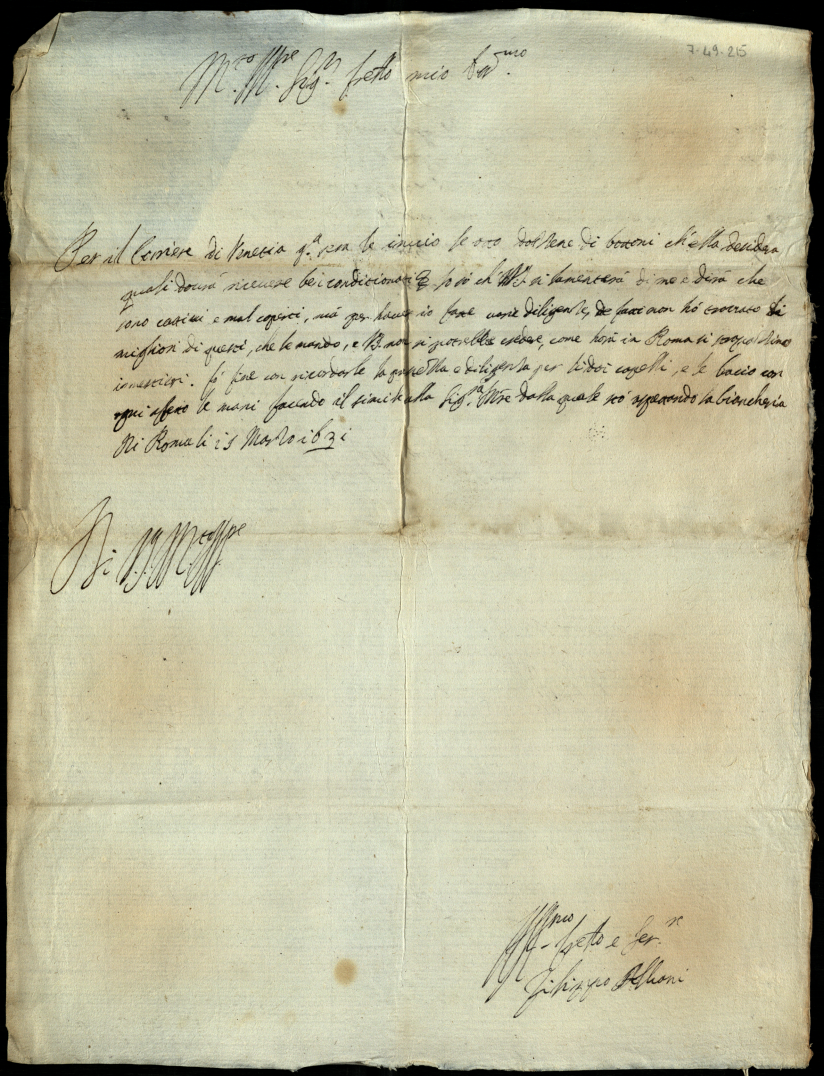 7-49-215
M.to Ill.re Sig.r fratello mio
Per il Corriere di Venetia q.a sera le invio le otto dozzene di bottoni ch'ella desidera
quali dovrà ricevere ben conditionati So ch' si lamenterà di me e dirà che
sono cattivi e mal coperti, mà per haver io fatte varie diligenze, non hò trovato
migliori di questi, che le mando, e non si potrebbe credere, come hora in Roma si
i mestieri. fine con ricordarle la e diligenza per li doi capelli, e le bacio con
ogni affetto le mani facendo il simile alla Sig.ra M.re dalla quale stò aspettando la biancheria
Di Roma li 15 Marzo 1631
Di V.S. M.to Ill.re
Aff.mo fratello e Ser.re
Filippo